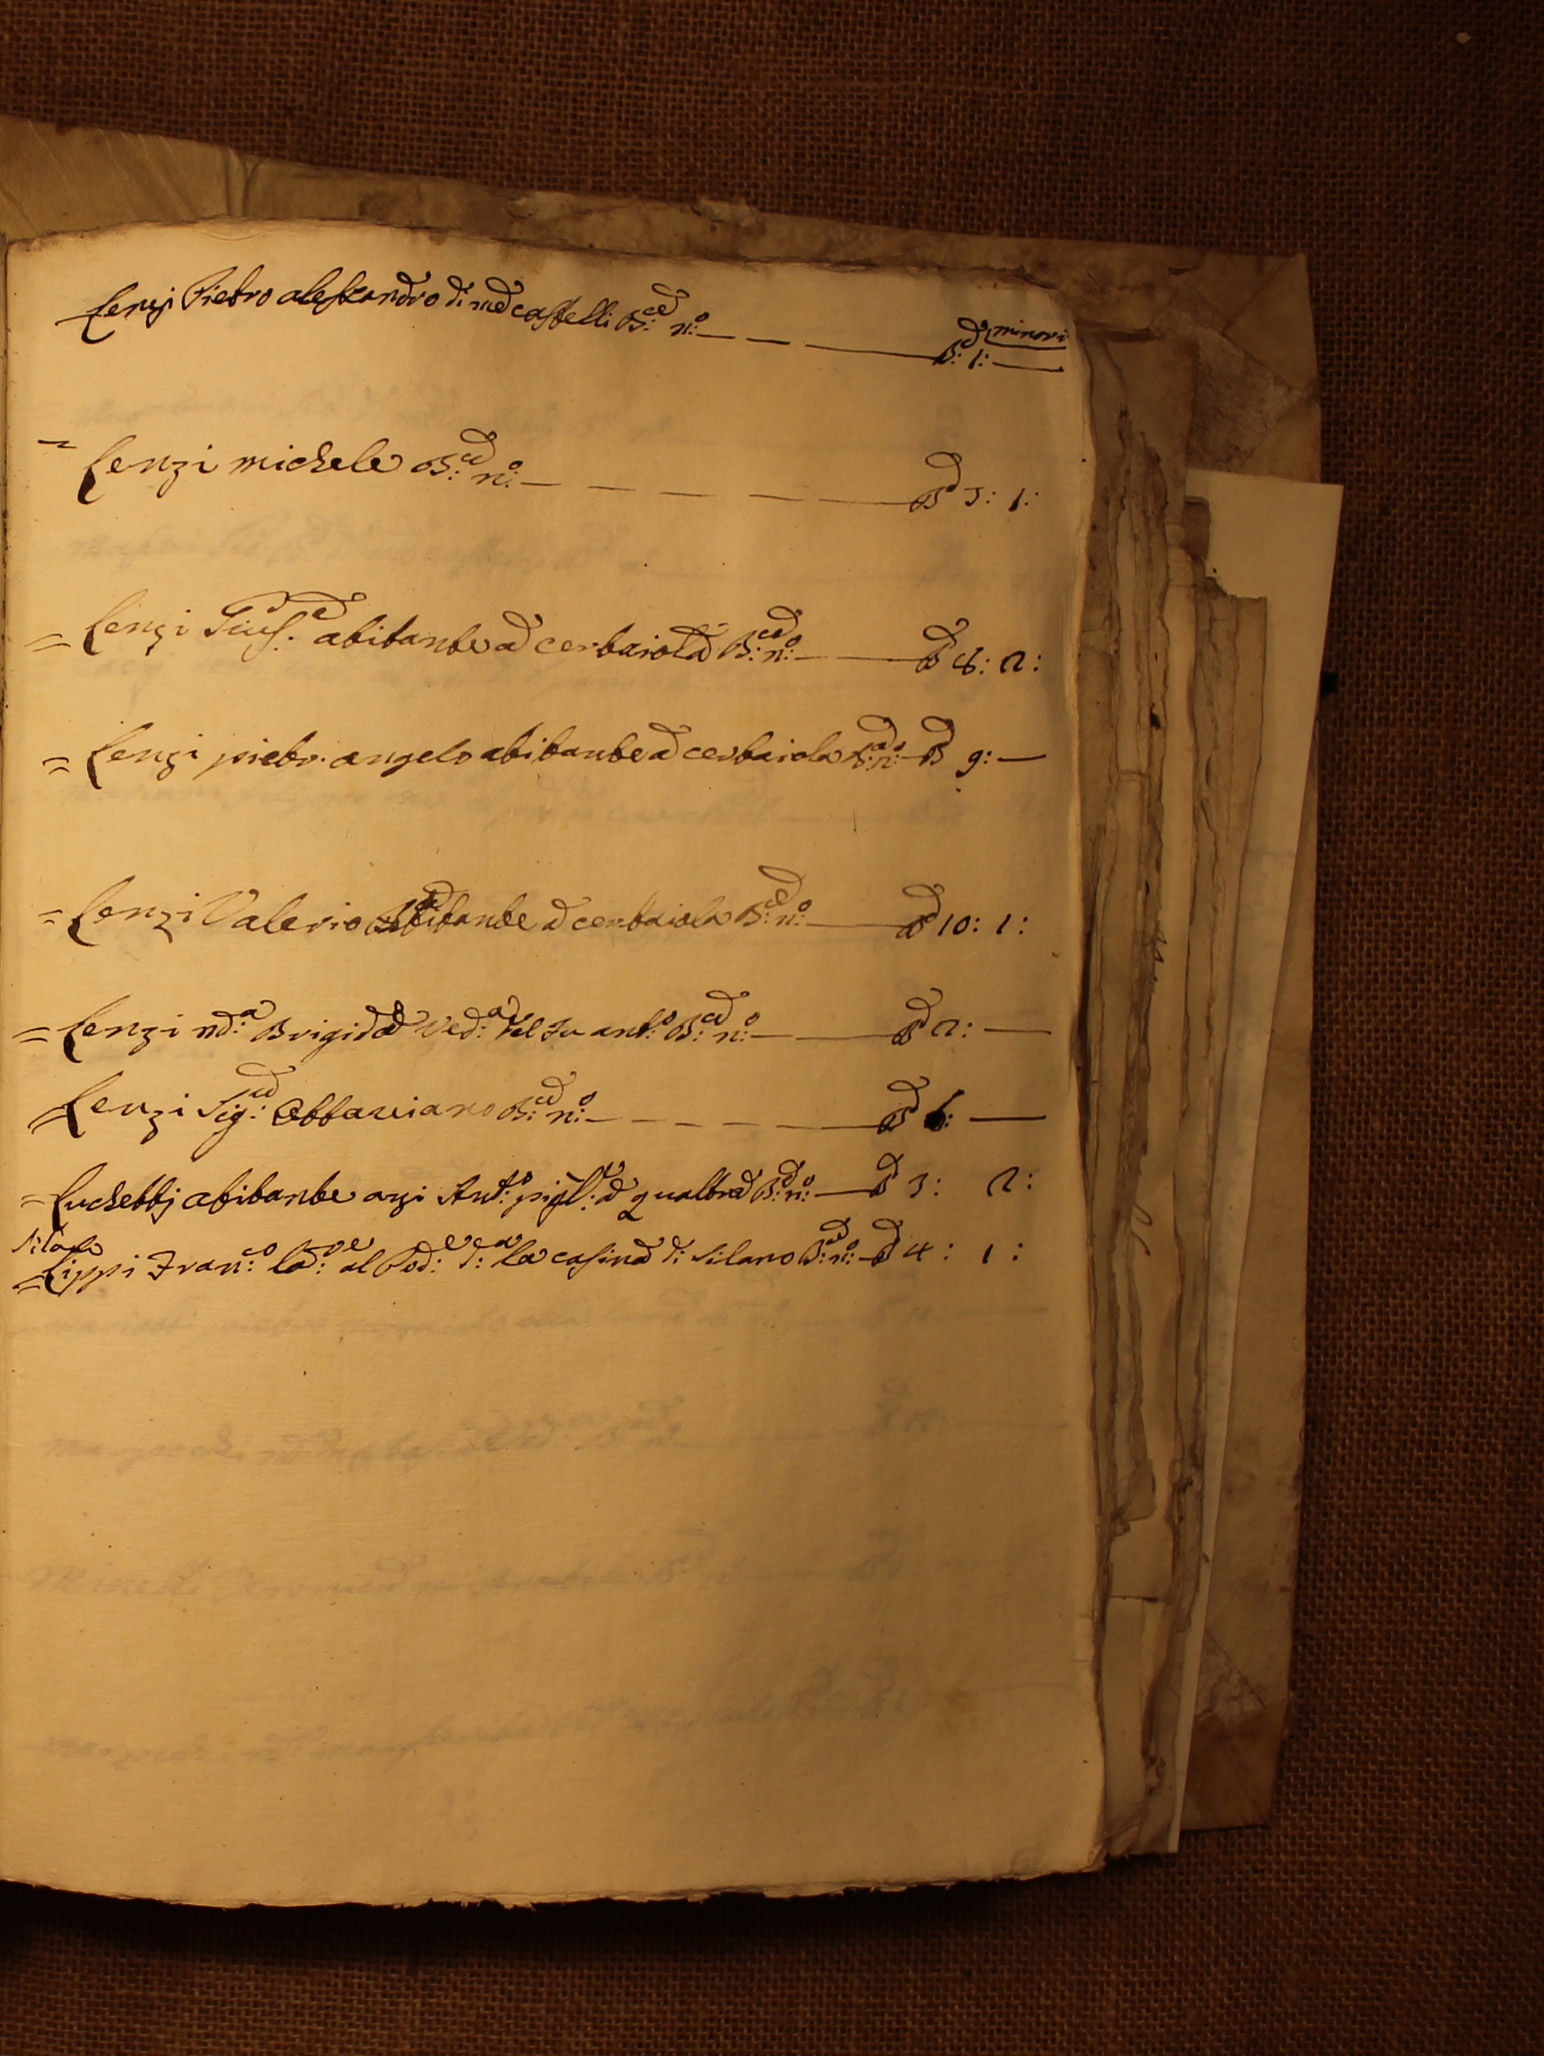 Lenzi Pietro alessandro di castelli B:ce n:o minori B: 1:
= Lenzi michele B:ce n:o B 5: 1:
= Lenzi Gius.e abitante a cerbaiola B:ce n:o B 8: 2:
= Lenzi pietr. angelo abitante a cerbaiola B: n:o B 9:
= Lenzi Valerio abitante a cerbaiola B:ce n:o 10: 1:
= Lenzi ma:a Brigida Ved:a del fu ant:o B:ce n:o B 2:
= Lenzi Sig:re Ottaviano B:ce n:o B 6:
= Luchettj abitante Ant:o a gualtra B: n:o B 3: 2:
Silano
= Lippi Fran:co la:re al Pod:e d:a la casina di silano B:ce n:o B 4: 1: